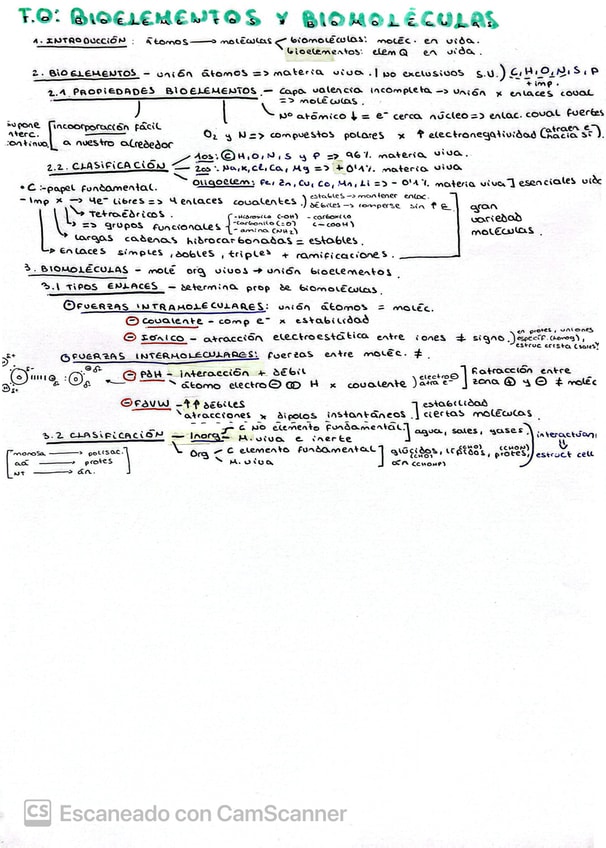 T.0: BIOELEMENTOS Y BIOMOLÉCULAS
1. INTRODUCCIÓN: átomos → moléculas < biomoléculas: moléc. en vida.
bioelementos: elem Q en vida.
2. BIOELEMENTOS - unión átomos => materia viva. / No exclusivos S.V.) C, H, O, N, S, P
+ imp.
2.1 PROPIEDADES BIOELEMENTOS - capa valencia incompleta → unión x enlaces coval
=> moléculas.
No atómico ↓ = e⁻ cerca núcleo => enlac. coval fuertes
supone interc. continuo [incoorporación fácil a nuestro alrededor
O₂ y N => compuestos polares x ↑ electronegatividad (atraen e⁻ hacia sí).
2.2. CLASIFICACIÓN
1os: C, H, O, N, S y P => 96% materia viva.
2os: Na, K, Cl, Ca, Mg => + 0'1% materia viva
Oligoelem: Fe, Zn, Cu, Co, Mn, Li => - 0'1% materia viva] esenciales vida
• C :- papel fundamental.
- Imp x → 4e⁻ libres => 4 enlaces covalentes.) estables → mantener enlac.
débiles → romperse sin ↑ E.
Tetraédricos.
=> grupos funcionales { - Hidroxilo (-OH) - carboxilo
- carbonilo (=O) (-COOH)
- amina (NH₂)
largas cadenas hidrocarbonadas = estables.
Enlaces simples, dobles, triples + ramificaciones.
gran
variedad
moléculas.
3. BIOMOLÉCULAS - molé org vivos → unión bioelementos.
3.1 TIPOS ENLACES - determina prop de biomoléculas.
FUERZAS INTRAMOLECULARES: unión átomos = moléc.
⊖ Covalente - comp e⁻ x estabilidad
⊖ Iónico - atracción electroestática entre iones ≠ signo.) en protes, uniones
especif.
FUERZAS INTERMOLECULARES: fuerzas entre moléc. ≠.
⊖ PDH - interacción + débil
átomo electro ⊖ H x covalente) electro ⊖ atrae e⁻ ] F. atracción entre
zona ⊕ y ⊖ ≠ moléc
⊖ FdVW - ↑↑ débiles
atracciones x dipolos instantáneos.] estabilidad
ciertas moléculas.
3.2 CLASIFICACIÓN - Inorg < C no elemento fundamental
M. viva e inerte ] agua, sales, gases.
Org < C elemento fundamental
M. viva ] glúcidos (CHO), lípidos (CHO), protes (CHON),
án (CHONP)
interactúan
⇓
estruct cell
[monosa → polisac.
aá → protes
NT → án.]
CS Escaneado con CamScanner